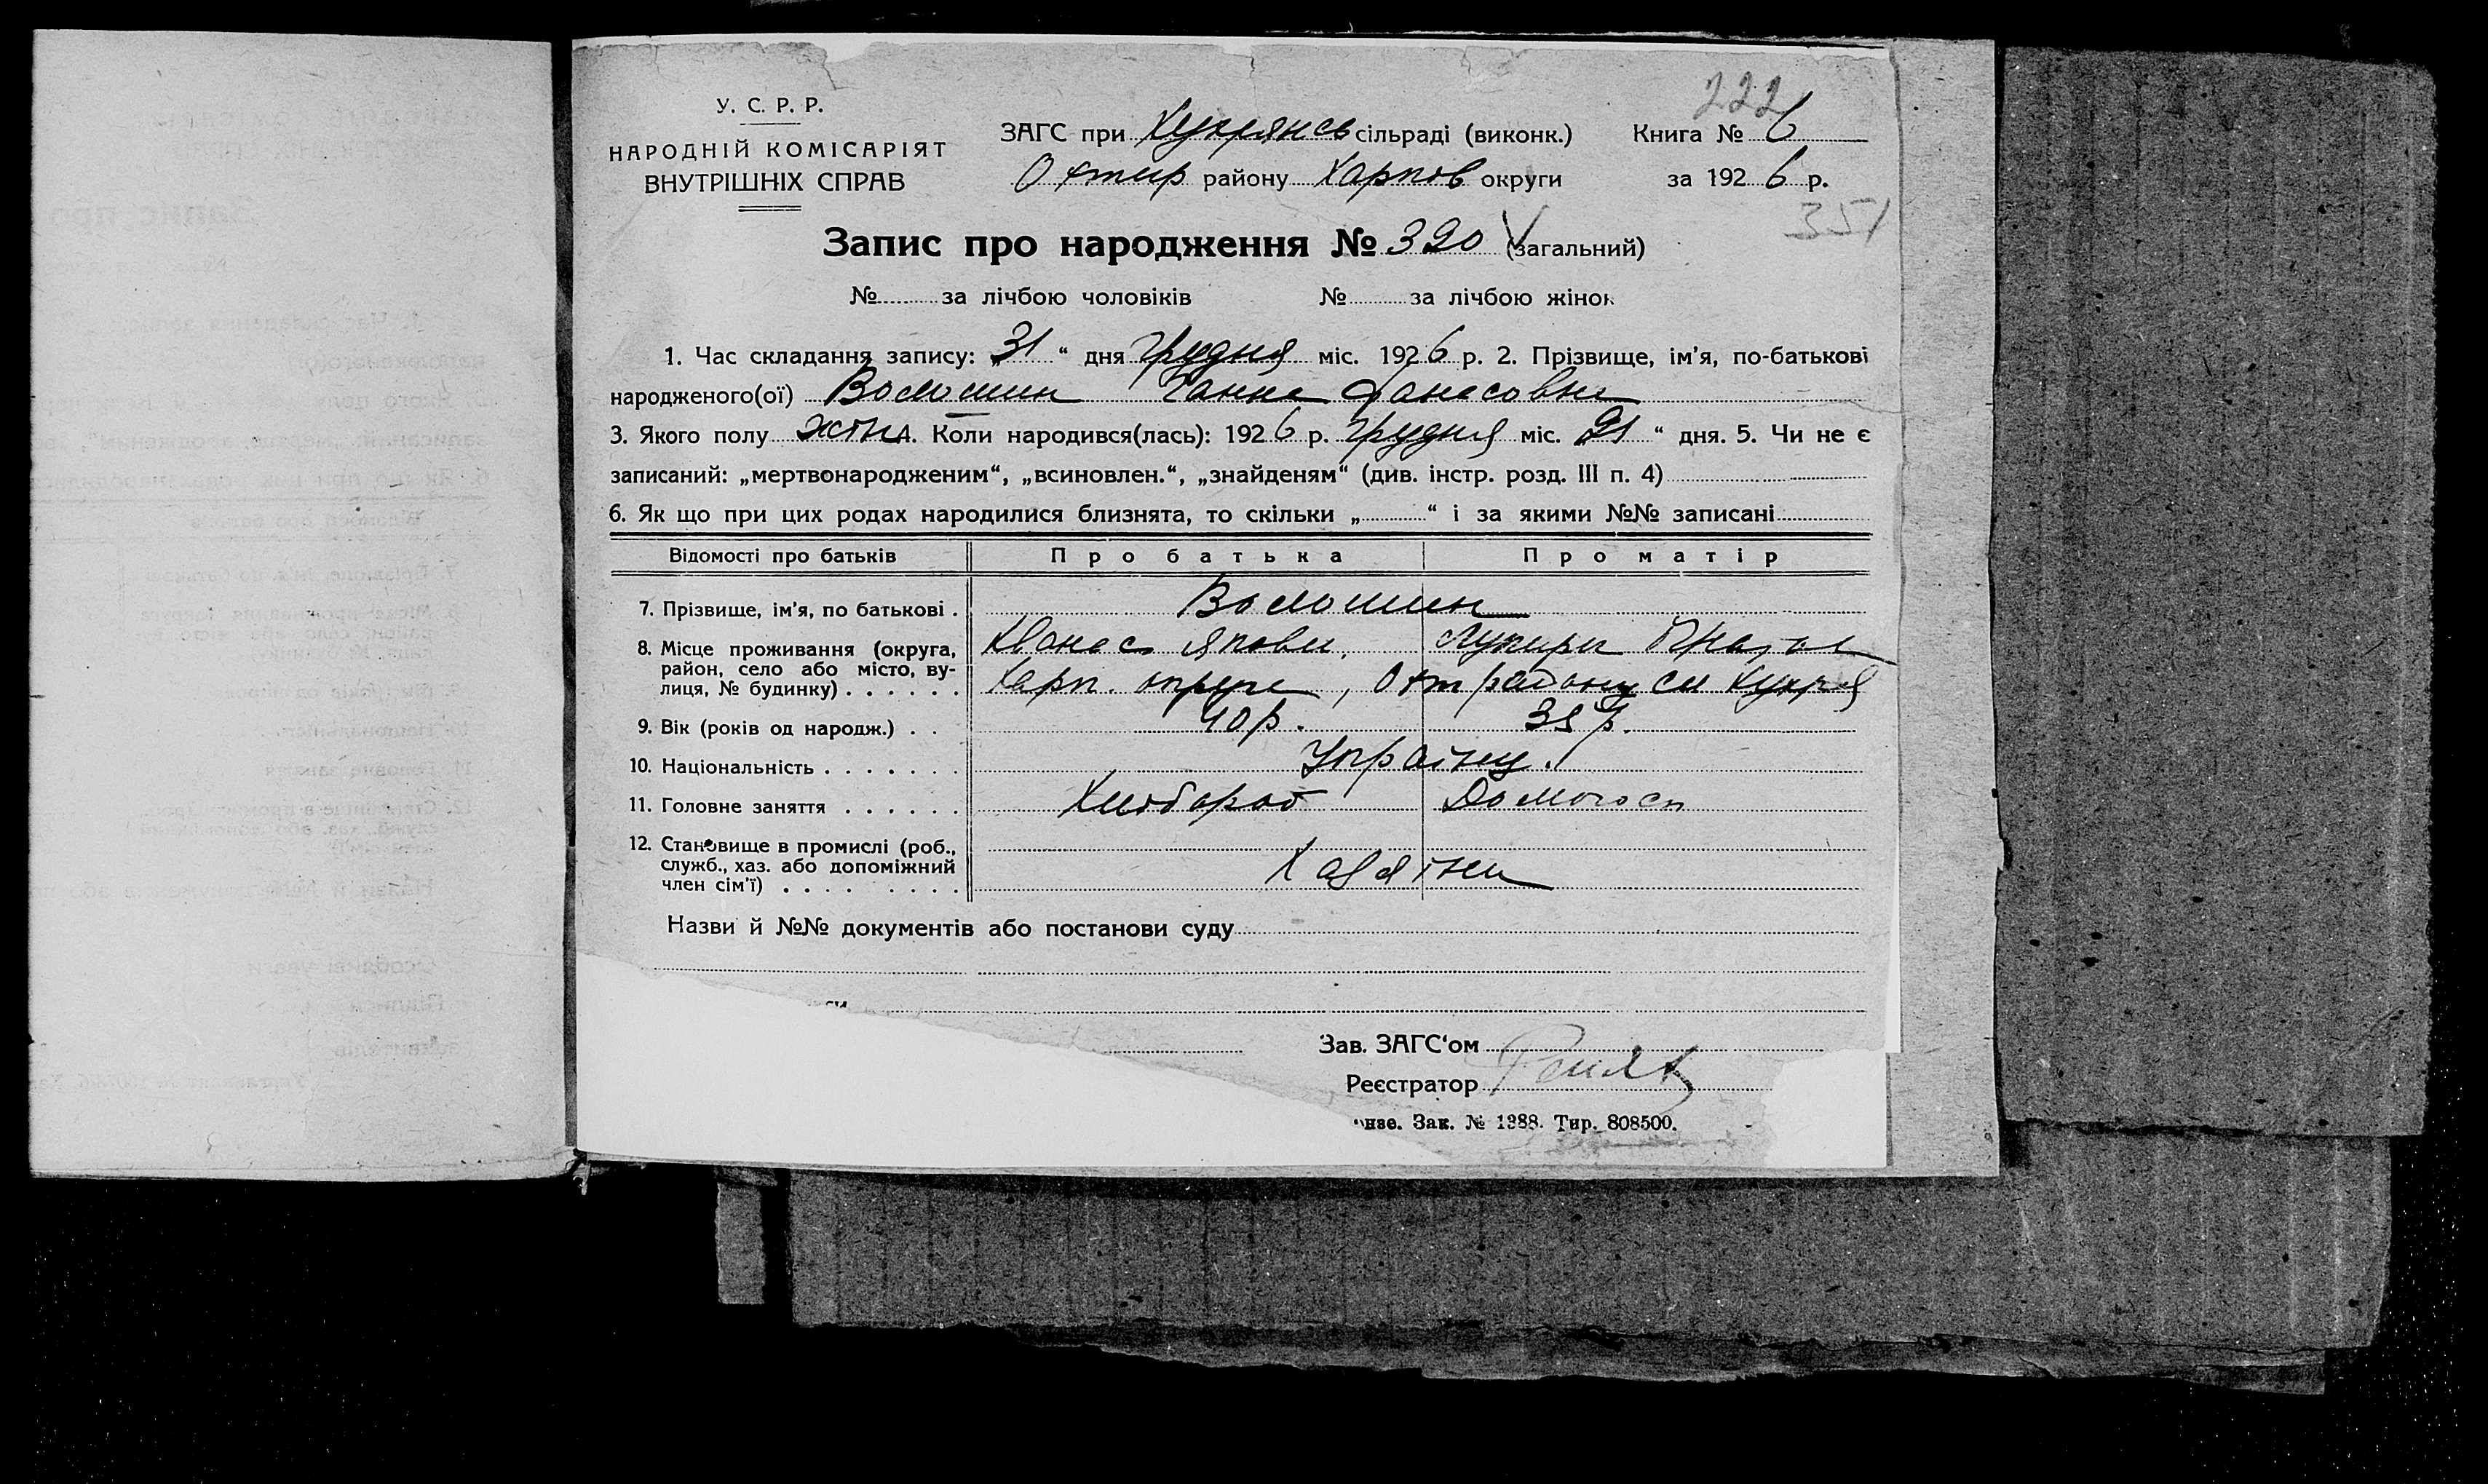 222
У. С. Р. Р.
НАРОДНІЙ КОМІСАРІЯТ
ВНУТРІШНІХ СПРАВ
ЗАГС при Хухрянсь сільраді (виконк.) Книга № 6
Охтир району Харков округи за 1926 р.
351
Запис про народження № 390 (загальний)
№ за лічбою чоловіків № за лічбою жінок
1. Час складання запису: „31“ дня грудня міс. 1926 р. 2. Прізвище, ім’я, по-батькові
народженого(ої) Волошин Ганна Фанасовна
3. Якого полу жін 4. Коли народився(лась): 1926 р. грудня міс. 21“ дня. 5. Чи не є
записаний: „мертвонародженим“, „всиновлен.“, „знайденям“ (див. інстр. розд. III п. 4)
6. Як що при цих родах народилися близнята, то скільки „ “ і за якими №№ записані
Відомості про батьків Про батька Про матір
7. Прізвище, ім’я, по батькові . Волошин
8. Місце проживання (округа, район, село або місто, вулиця, № будинку) . . . . . .
Якови, Лукири
Харк. округи, Охт району сл Хухря
9. Вік (років од народж.) . . 40 р. 35 р.
10. Національність . . . . . . . Україну.
11. Головне заняття . . . . . . Хлібороб Домогосп
12. Становище в промислі (роб., служб., хаз. або допоміжний член сім’ї) . . . . . . . . . Хазяїни
Назви й №№ документів або постанови суду
Зав. ЗАГС‘ом
Реєстратор
Зак. № 1388. Тир. 808500.